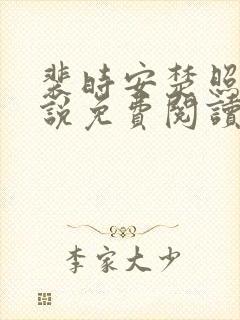 裴時安楚照
說免費閱讀
李家大少